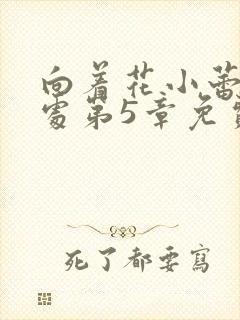 向着花小蕾深
处第5章免费
死了都要寫